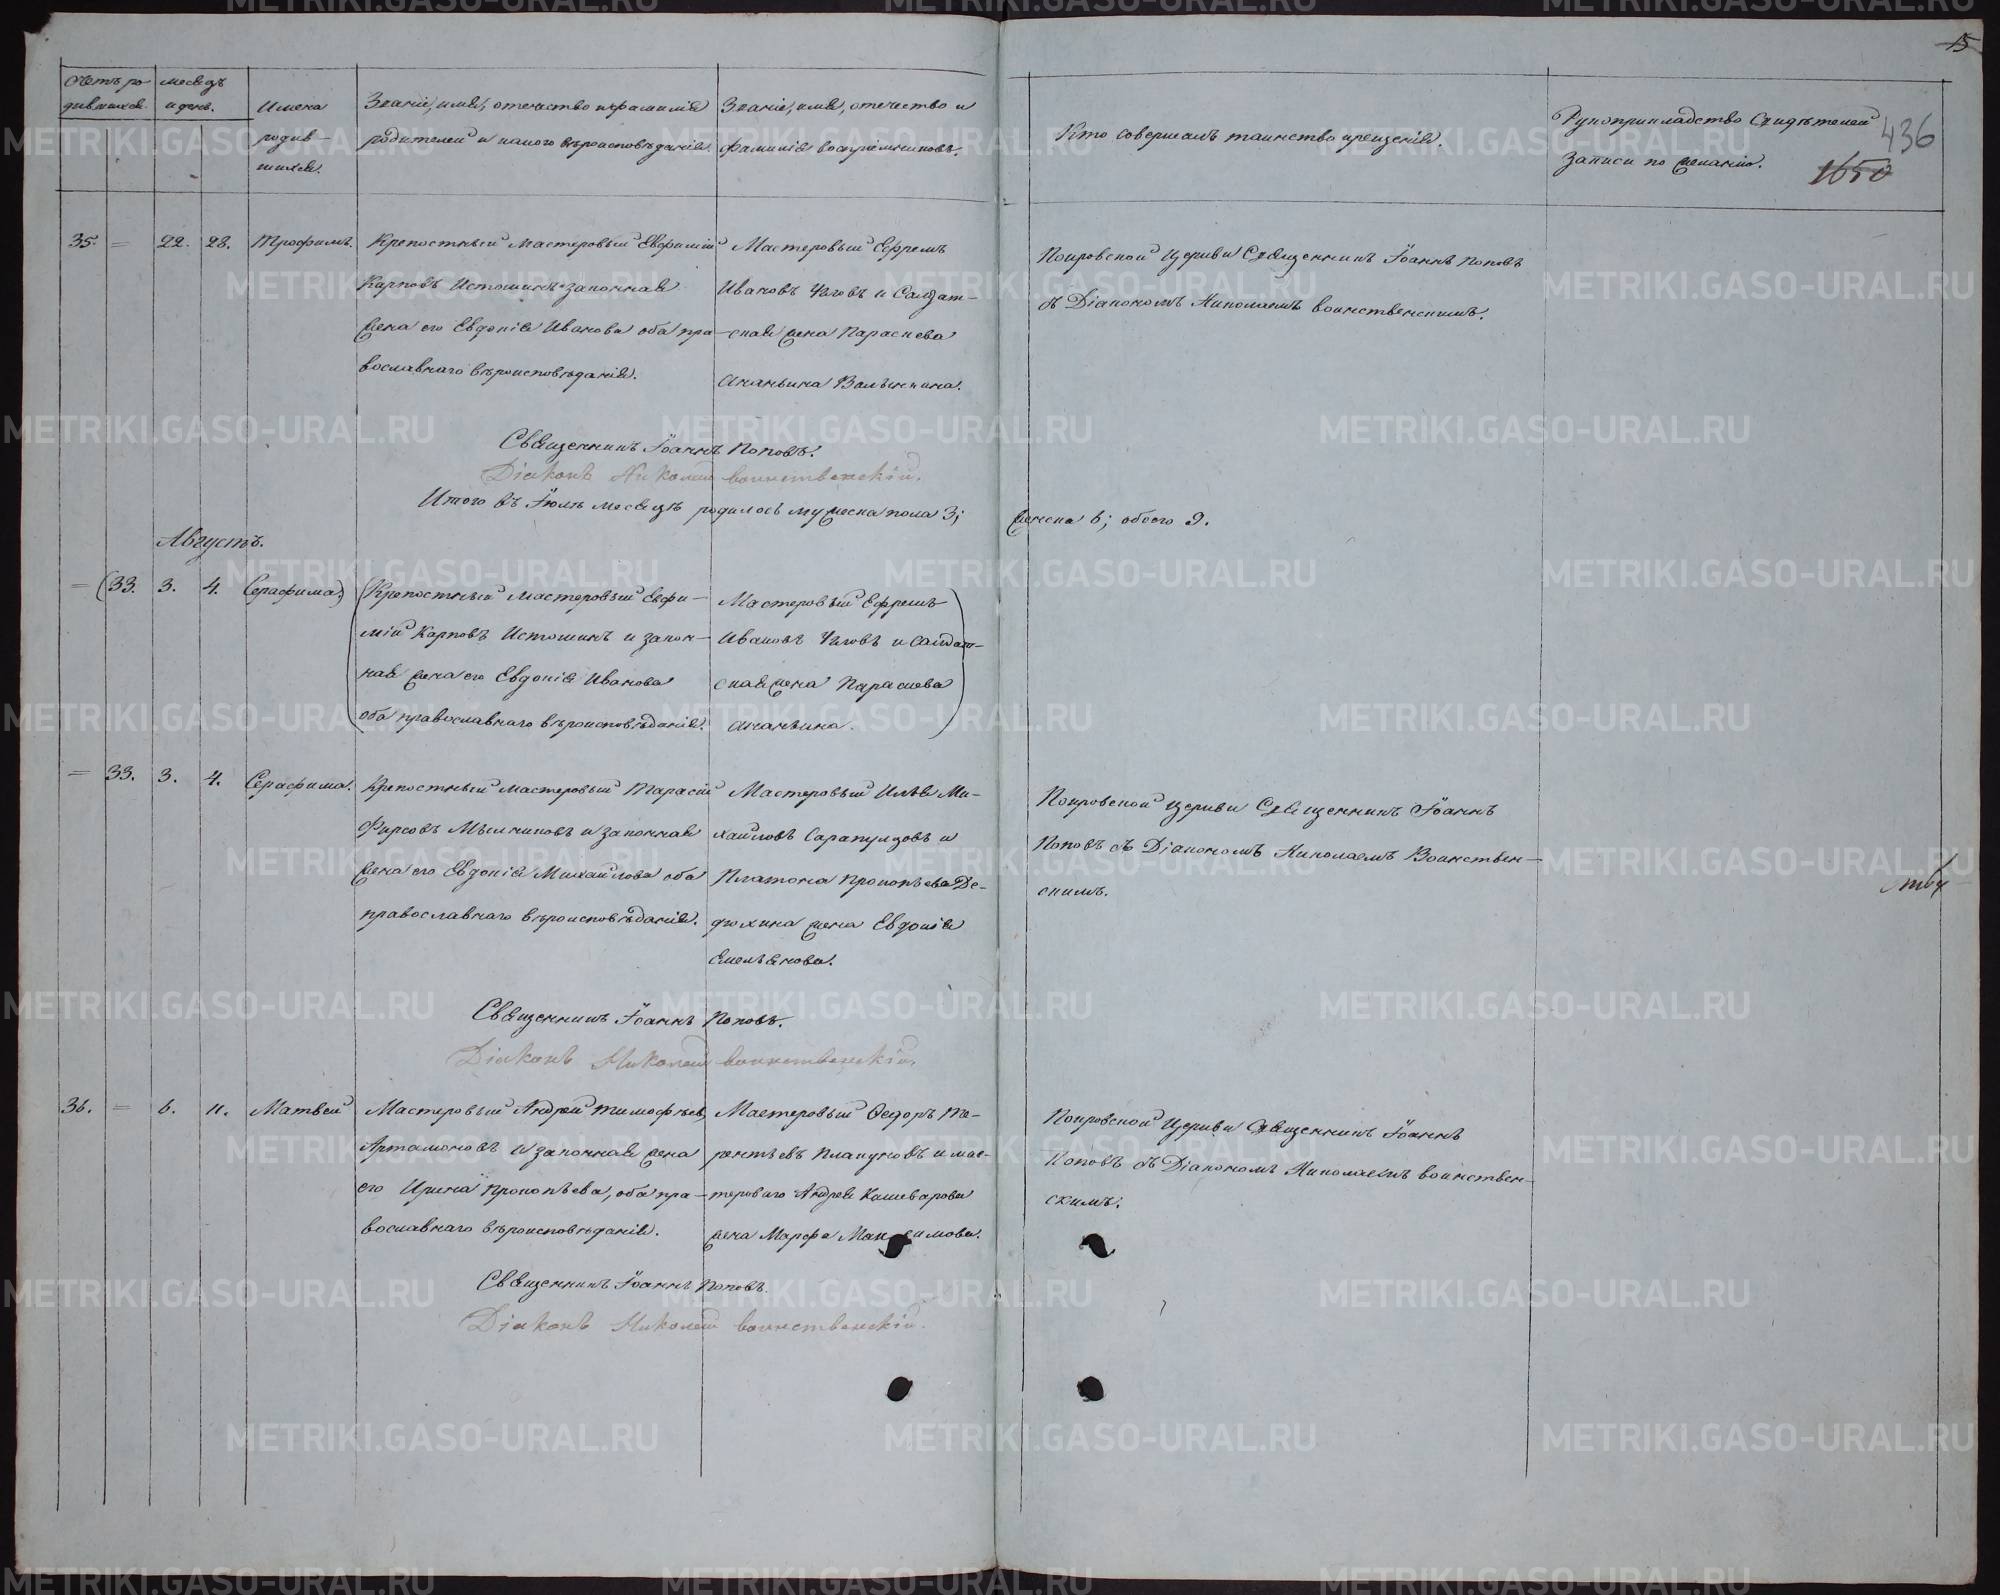 15
436
1650
Счетъ родившихся.
Месяцъ и день.
Имена родив-
шихся.
Званіе, имя, отечество и фамилія
родителей и какого вѣроисповѣданія.
Званіе, имя, отечество и
фамилія воспріемниковъ.
Кто совершалъ таинство крещенія.
Рукоприкладство Свидѣтелей
записи по желанію.
35. = 22. 28. Трофимъ.
Крепостный Мастеровый Евфимій
Карповъ Истоминъ законная
жена его Евдокія Иванова оба пра-
вославнаго вѣроисповѣданія.
Мастеровый Ефремъ
Ивановъ Чловъ и Салдат-
ская жена Параскева
Ананьина Валынкина.
Покровской Церкви Священникъ Іоаннъ Поповъ
съ Діакономъ Николаемъ Воинственскимъ.
Священникъ Іоаннъ Поповъ.
Діаконъ Николай Воинственскій.
Итого въ Іюлѣ месяцѣ родилось мужеска пола 3; женска 6; обоего 9.
Августъ.
= (33. 3. 4. Серафима)
(Крепостный Мастеровый Евфи-
мій Карповъ Истоминъ и закон-
ная жена его Евдокія Иванова
оба православнаго вѣроисповѣданія.
Мастеровый Ефремъ
Ивановъ Чловъ и Салдат-
ская жена Параскева
Ананьина.)
= 33. 3. 4. Серафима.
Крепостный Мастеровый Тарасій
Фирсовъ Мѣлниковъ и законная
жена его Евдокія Михайлова оба
православнаго вѣроисповѣданія.
Мастеровый Илья Ми-
хайловъ Сарапулцовъ и
Платона Прокопьева Де-
дюхина жена Евдокія
Емельянова.
Покровской Церкви Священникъ Іоаннъ
Поповъ съ Діакономъ Николаемъ Воинствен-
скимъ.
Священникъ Іоаннъ Поповъ.
Діаконъ Николай Воинственскій.
36. = 6. 11. Матвей
Мастеровый Андрей Тимофѣев
Артамоновъ и законная жена
его Ирина Прокопьева, оба пра-
вославнаго вѣроисповѣданія.
Мастеровый Ѳедоръ Те-
рентьевъ Плакуновъ и мас-
тероваго Андрея Кашеварова
жена Марфа Максимова.
Покровской Церкви Священникъ Іоаннъ
Поповъ съ Діакономъ Николаемъ Воинствен-
скимъ.
Священникъ Іоаннъ Поповъ.
Діаконъ Николай Воинственскій.
METRIKI.GASO-URAL.RU